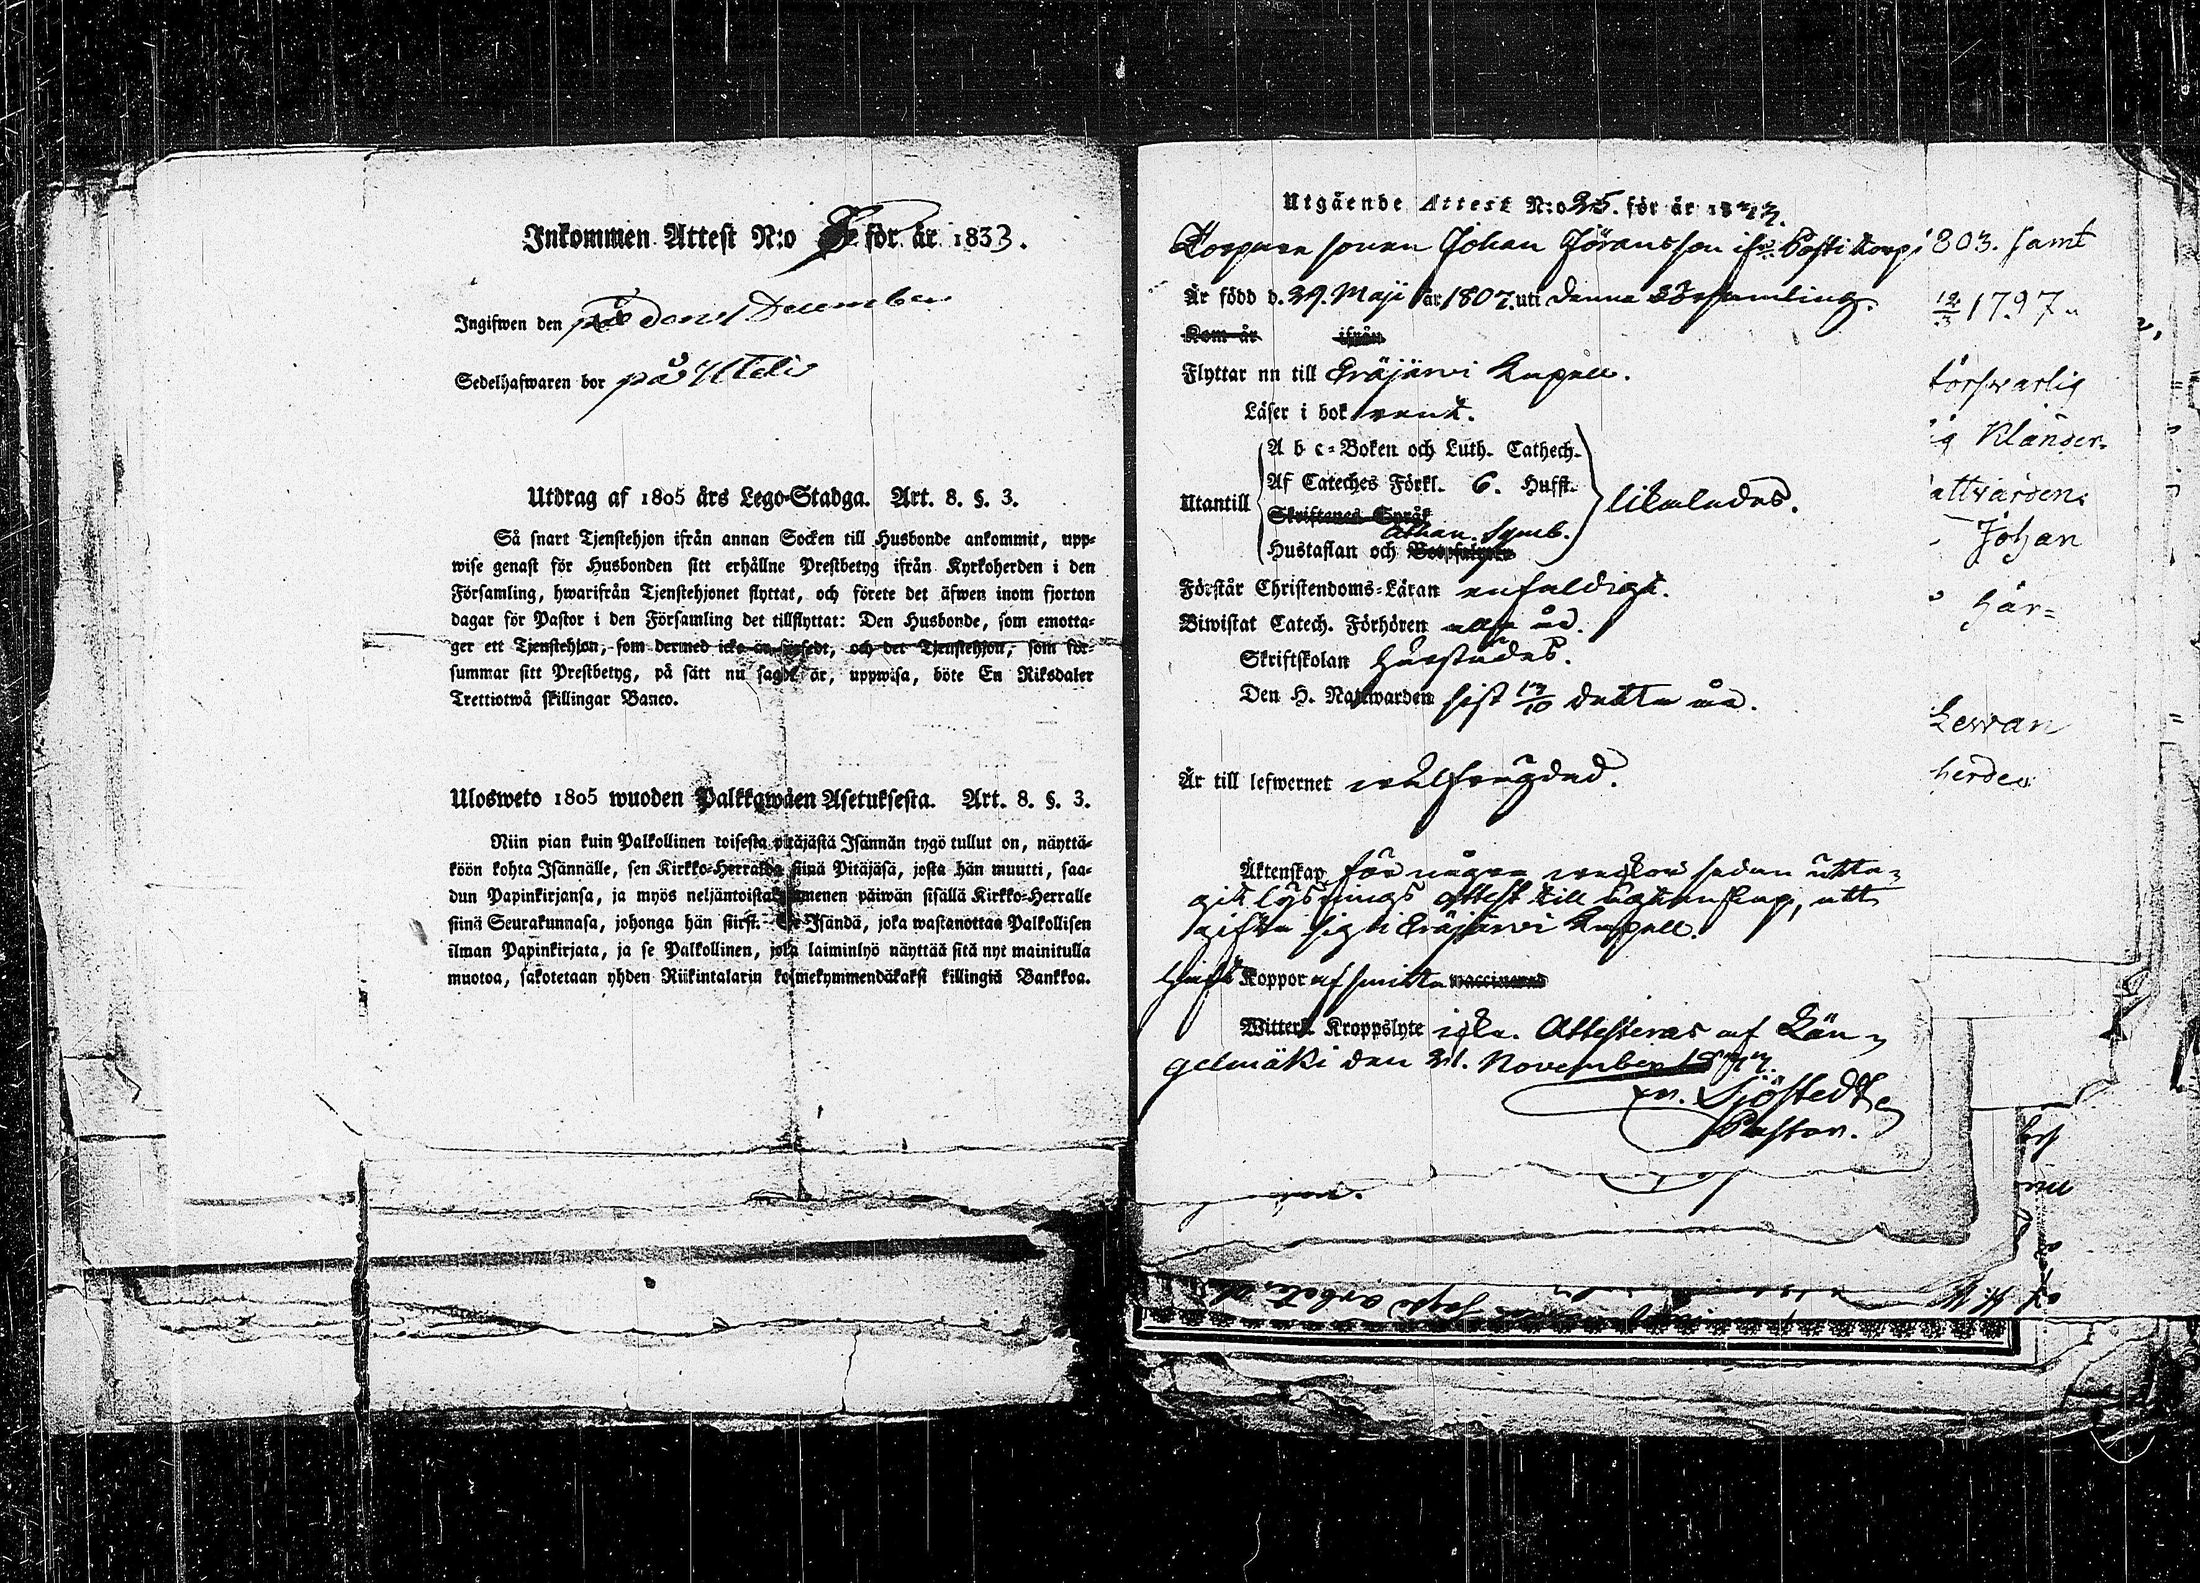 Inkommen Attest N:o för år 1833.
Ingifwen den December
Sedelhafwaren bor på Uteli
Utdrag af 1805 års Lego-Stadga. Art. 8. §. 3.
Så snart Tjenstehjon ifrån annan Socken till Husbonde ankommit, upp-
wise genast för Husbonden sitt erhållne Prestbetyg ifrån Kyrkoherden i den
Församling, hwarifrån Tjenstehjonet flyttat, och förete det äfwen inom fjorton
dagar för Pastor i den Församling det tillflyttat: Den Husbonde, som emotta-
ger ett Tjenstehjon, som dermed icke är försedt, och det Tjenstehjon, som för-
summar sitt Prestbetyg, på sätt nu sagdt är, uppwisa, böte En Riksdaler
Trettiotwå skillingar Banco.
Ulosweto 1805 wuoden Palkkawäen Asetuksesta. Art. 8. §. 3.
Niin pian kuin Palkollinen toisesta pitäjästä Isännän tygö tullut on, näyttä-
köön kohta Isännälle, sen Kirkko-Herralda siinä Pitäjäsä, josta hän muutti, saa-
dun Papinkirjansa, ja myös neljäntoistakymmenen päiwän sisällä Kirkko-Herralle
siinä Seurakunnasa, johonga hän siirst. Se Isändä, joka wastanottaa Palkollisen
ilman Papinkirjata, ja se Palkollinen, joka laiminlyö näyttää sitä nyt mainitulla
muotoa, sakotetaan yhden Riikintalarin kolmekymmendäkaksi killingiä Bankkoa.
Utgående Attest N:o 25. för år 1833.
Torpare sonen Johan Jöransson ifr. Posti Torp
Är född d. 29. Maji år 1807. uti denna Församling.
Kom år ifrån
Flyttar nu till Eräjärvi Kapell.
Läser i bok rent.
A b c-Boken och Luth. Cathech.
Af Cateches Förkl. 6. Hufst.
Utantill likaledes.
Skriftenes Språk
Athan. Symb.
Hustaflan och
Förstår Christendoms-Läran enfaldigt.
Biwistat Catech. Förhören alla år.
Skriftskolan härstädes.
Den H. Nattwarden sist 13/10 detta år.
Är till lefwernet wälfrägdad.
Äktenskap för några weckor sedan utta-
git lysnings attest till ägtenskap, att
gifta sig i Eräjärvi Kapell.
Haft Koppor af smitta vaccinerad
Witterl. Kroppslyte icke. Attesteras af Län-
gelmäki den 21. November 1833.
Sjöstedt
Pastor.
803. samt
12/3 1797
försvarlig
Klander
attvarden
Johan
här-
Lewan
herde